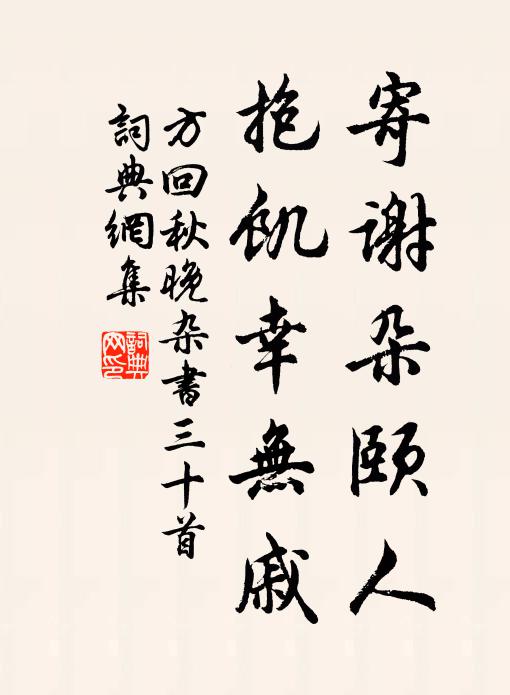 寄谢朵颐人
抱飢幸無戚
方回秋晚杂書三十首
詞典網集
詞典網印